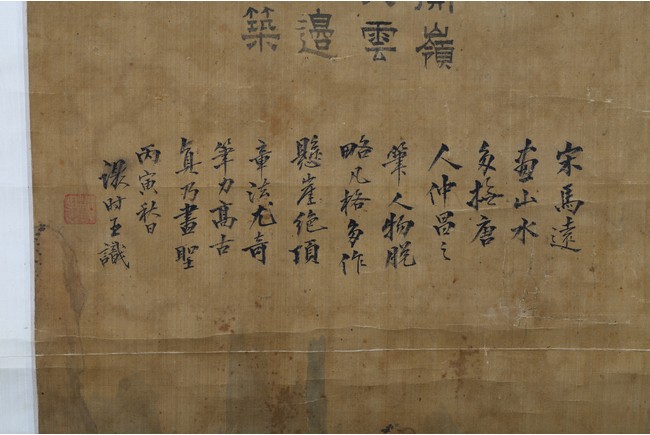 嶺
雲
邊
築
宋馬遠
畫山水
多撫唐
人仲昌之
筆人物脫
略凡格多作
懸崖絶頂
章法尤奇
筆力高古
真乃畫聖
丙寅秋日
时玉識